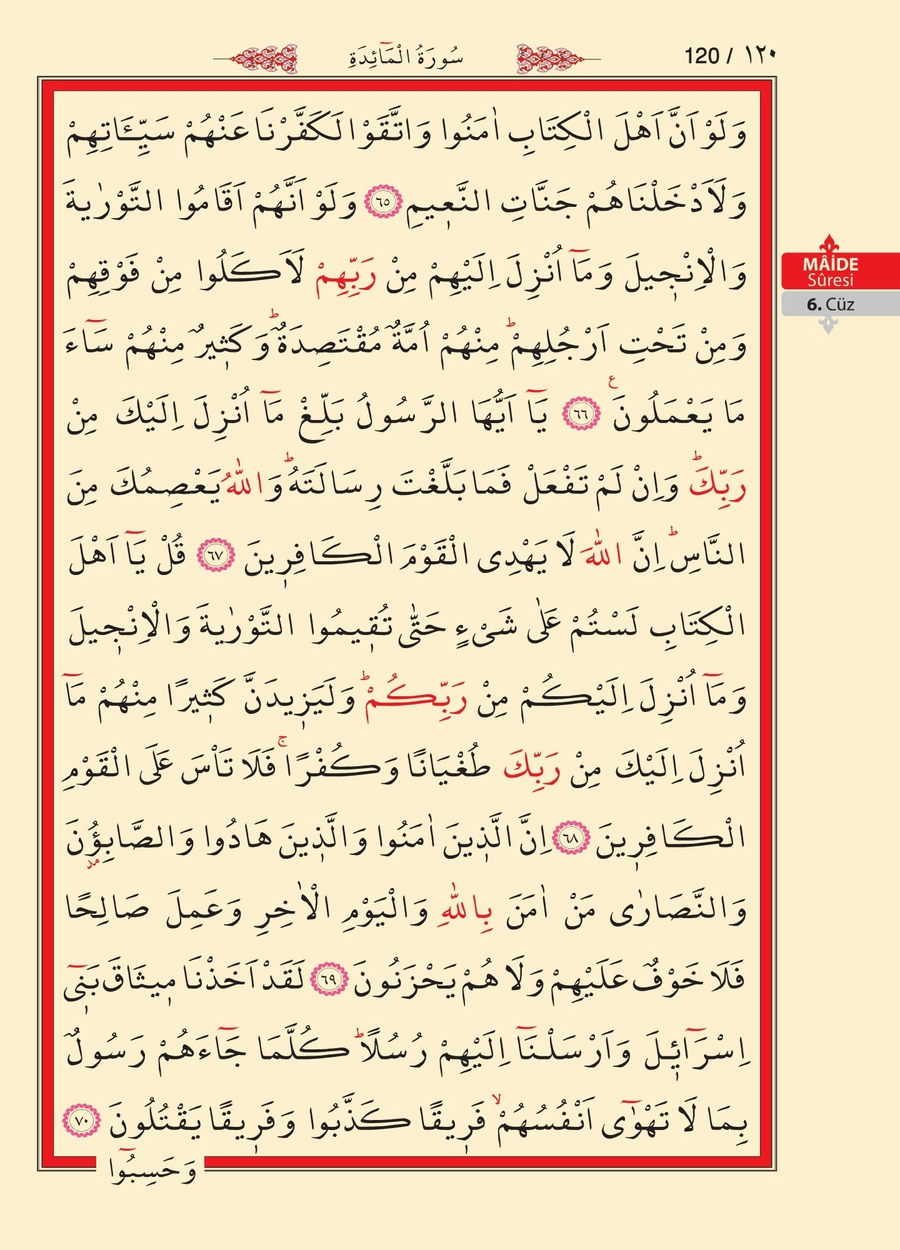 120 / ١٢٠
سُورَةُ الْمَٓائِدَةِ
وَلَوْ اَنَّ اَهْلَ الْكِتَابِ اٰمَنُوا وَاتَّقَوْا لَكَفَّرْنَا عَنْهُمْ سَيِّـَٔاتِهِمْ
وَلَاَدْخَلْنَاهُمْ جَنَّاتِ النَّع۪يمِ ﴿٦٥﴾ وَلَوْ اَنَّهُمْ اَقَامُوا التَّوْرٰيةَ
وَالْاِنْج۪يلَ وَمَٓا اُنْزِلَ اِلَيْهِمْ مِنْ رَبِّهِمْ لَاَكَلُوا مِنْ فَوْقِهِمْ
وَمِنْ تَحْتِ اَرْجُلِهِمْۜ مِنْهُمْ اُمَّةٌ مُقْتَصِدَةٌۜ وَكَث۪يرٌ مِنْهُمْ سَٓاءَ
مَا يَعْمَلُونَ۟ ﴿٦٦﴾ يَٓا اَيُّهَا الرَّسُولُ بَلِّغْ مَٓا اُنْزِلَ اِلَيْكَ مِنْ
رَبِّكَۜ وَاِنْ لَمْ تَفْعَلْ فَمَا بَلَّغْتَ رِسَالَتَهُۜ وَاللّٰهُ يَعْصِمُكَ مِنَ
النَّاسِۜ اِنَّ اللّٰهَ لَا يَهْدِى الْقَوْمَ الْكَافِر۪ينَ ﴿٦٧﴾ قُلْ يَٓا اَهْلَ
الْكِتَابِ لَسْتُمْ عَلٰى شَىْءٍ حَتّٰى تُق۪يمُوا التَّوْرٰيةَ وَالْاِنْج۪يلَ
وَمَٓا اُنْزِلَ اِلَيْكُمْ مِنْ رَبِّكُمْۜ وَلَيَز۪يدَنَّ كَث۪يرًا مِنْهُمْ مَٓا
اُنْزِلَ اِلَيْكَ مِنْ رَبِّكَ طُغْيَانًا وَكُفْرًاۚ فَلَا تَأْسَ عَلَى الْقَوْمِ
الْكَافِر۪ينَ ﴿٦٨﴾ اِنَّ الَّذ۪ينَ اٰمَنُوا وَالَّذ۪ينَ هَادُوا وَالصَّابِؤُنَ
مد
وَالنَّصَارٰى مَنْ اٰمَنَ بِاللّٰهِ وَالْيَوْمِ الْاٰخِرِ وَعَمِلَ صَالِحًا
فَلَا خَوْفٌ عَلَيْهِمْ وَلَا هُمْ يَحْزَنُونَ ﴿٦٩﴾ لَقَدْ اَخَذْنَا م۪يثَاقَ بَن۪ٓى
اِسْرَٓائ۪لَ وَاَرْسَلْنَٓا اِلَيْهِمْ رُسُلًاۜ كُلَّمَا جَٓاءَهُمْ رَسُولٌ
بِمَا لَا تَهْوٰٓى اَنْفُسُهُمْۙ فَر۪يقًا كَذَّبُوا وَفَر۪يقًا يَقْتُلُونَ ﴿٧٠﴾
وَحَسِبُٓوا
MÂİDE
Sûresi
6. Cüz